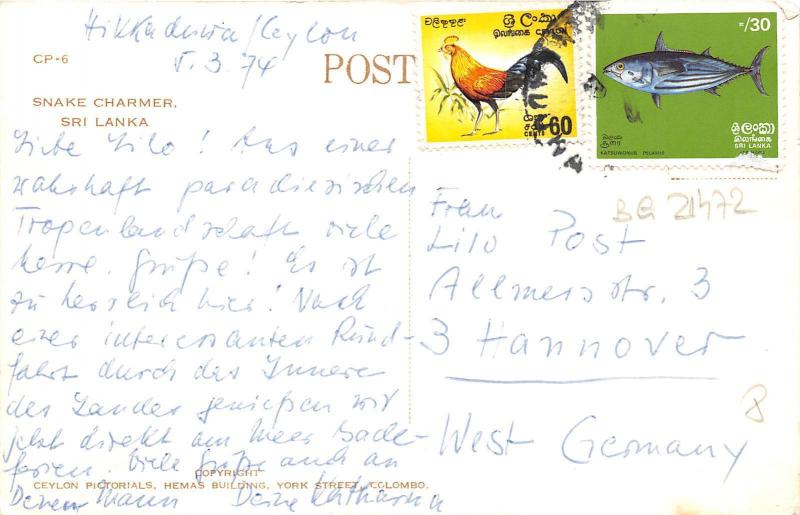 Hikkaduwa/Ceylon
5.3.74
CP-6
POST
SNAKE CHARMER,
SRI LANKA
Liebe Lilo! Aus einer
wahrhaft paradiesischen
Tropenlandschaft viele
Grüße! Es ist
zu herrlich hier! Nach
einer interessanten Rund-
fahrt durch das Innere
des Landes genießen wir
jetzt direkt am Meer Bade-
ferien. Viele Grüße auch an
Deinen Mann Deine Katharina
COPYRIGHT
CEYLON PICTORIALS, HEMAS BUILDING, YORK STREET, COLOMBO.
වලිකුකුළා
ශ්‍රී ලංකා
இலங்கை CEYLON
සත
சதம்
CENTS 60
=/30
බලයා
சூரை
KATSUWONUS PELAMIS
ශ්‍රී ලංකා
இலங்கை
SRI LANKA
BG 21472
Frau
Lilo Post
Allmersstr. 3
3 Hannover
West Germany
8